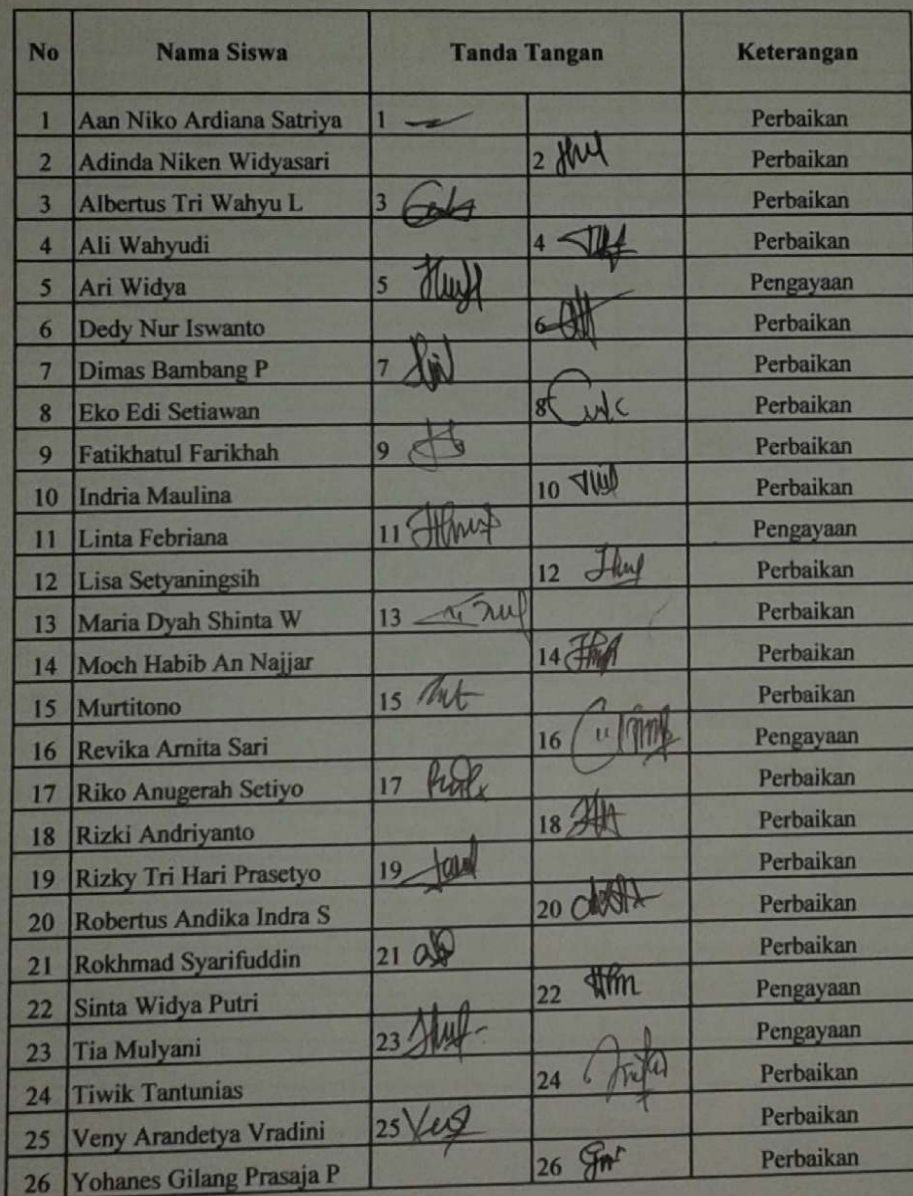 No Nama Siswa Tanda Tangan Keterangan
1 Aan Niko Ardiana Satriya 1 Perbaikan
2 Adinda Niken Widyasari 2 Perbaikan
3 Albertus Tri Wahyu L 3 Perbaikan
4 Ali Wahyudi 4 Perbaikan
5 Ari Widya 5 Pengayaan
6 Dedy Nur Iswanto 6 Perbaikan
7 Dimas Bambang P 7 Perbaikan
8 Eko Edi Setiawan 8 Perbaikan
9 Fatikhatul Farikhah 9 Perbaikan
10 Indria Maulina 10 Perbaikan
11 Linta Febriana 11 Pengayaan
12 Lisa Setyaningsih 12 Perbaikan
13 Maria Dyah Shinta W 13 Perbaikan
14 Moch Habib An Najjar 14 Perbaikan
15 Murtitono 15 Perbaikan
16 Revika Arnita Sari 16 Pengayaan
17 Riko Anugerah Setiyo 17 Perbaikan
18 Rizki Andriyanto 18 Perbaikan
19 Rizky Tri Hari Prasetyo 19 Perbaikan
20 Robertus Andika Indra S 20 Perbaikan
21 Rokhmad Syarifuddin 21 Perbaikan
22 Sinta Widya Putri 22 Pengayaan
23 Tia Mulyani 23 Pengayaan
24 Tiwik Tantunias 24 Perbaikan
25 Veny Arandetya Vradini 25 Perbaikan
26 Yohanes Gilang Prasaja P 26 Perbaikan